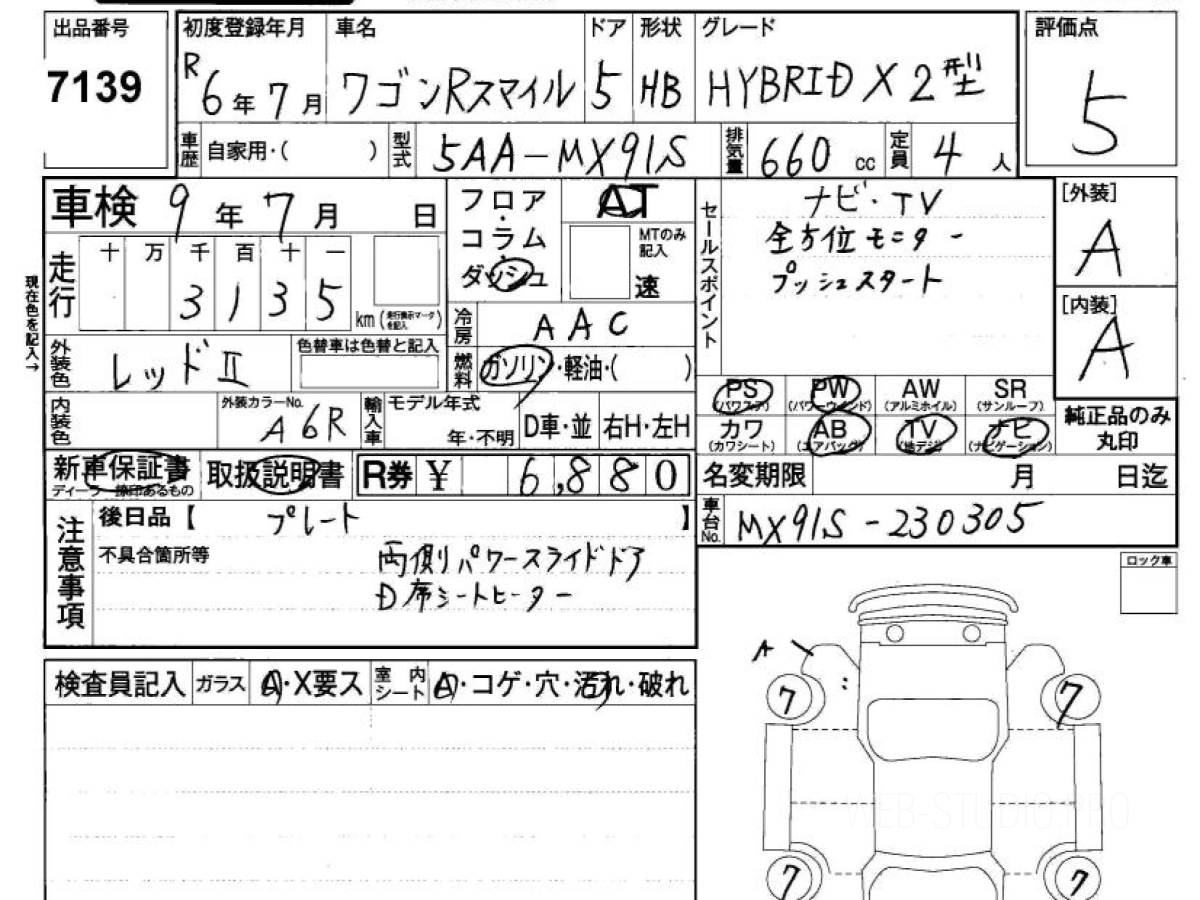 出品番号 初度登録年月 車名 ドア 形状 グレード 評価点
7139 R6年7月 ワゴンRスマイル 5 HB HYBRID X 2型 5
車歴 自家用・( ) 型式 5AA-MX91S 排気量 660 cc 定員 4 人
車検 9年7月 日
走行 十 万 千 百 十 一
3 1 3 5 km (走行換示マークを記入)
現在色を記入→
外装色 レッドⅡ 色替車は色替と記入
内装色 外装カラーNo. A6R 輸入車 モデル年式 年・不明 D車・並 右H・左H
フロア・コラム・ダッシュ
AT
MTのみ記入
速
冷房 AAC
燃料 ガソリン・軽油・( )
セールスポイント
ナビ・TV
全方位モニター
プッシュスタート
[外装]
A
[内装]
A
PS (パワステ) PW (パワーウインド) AW (アルミホイル) SR (サンルーフ)
カワ (カワシート) AB (エアバッグ) TV (地デジ) ナビ (ナビゲーション)
純正品のみ
丸印
新車保証書 取扱説明書 R券 ¥ 6,880
ディーラー捺印あるもの
名変期限 月 日迄
車台No. MX91S-230305
注意事項
後日品【 プレート 】
不具合箇所等 両側パワースライドドア
D席シートヒーター
ロック車
検査員記入 ガラス A・X要ス 室内シート A・コゲ・穴・汚れ・破れ
A
7 7
WEB-STUDIO.PRO
7 7